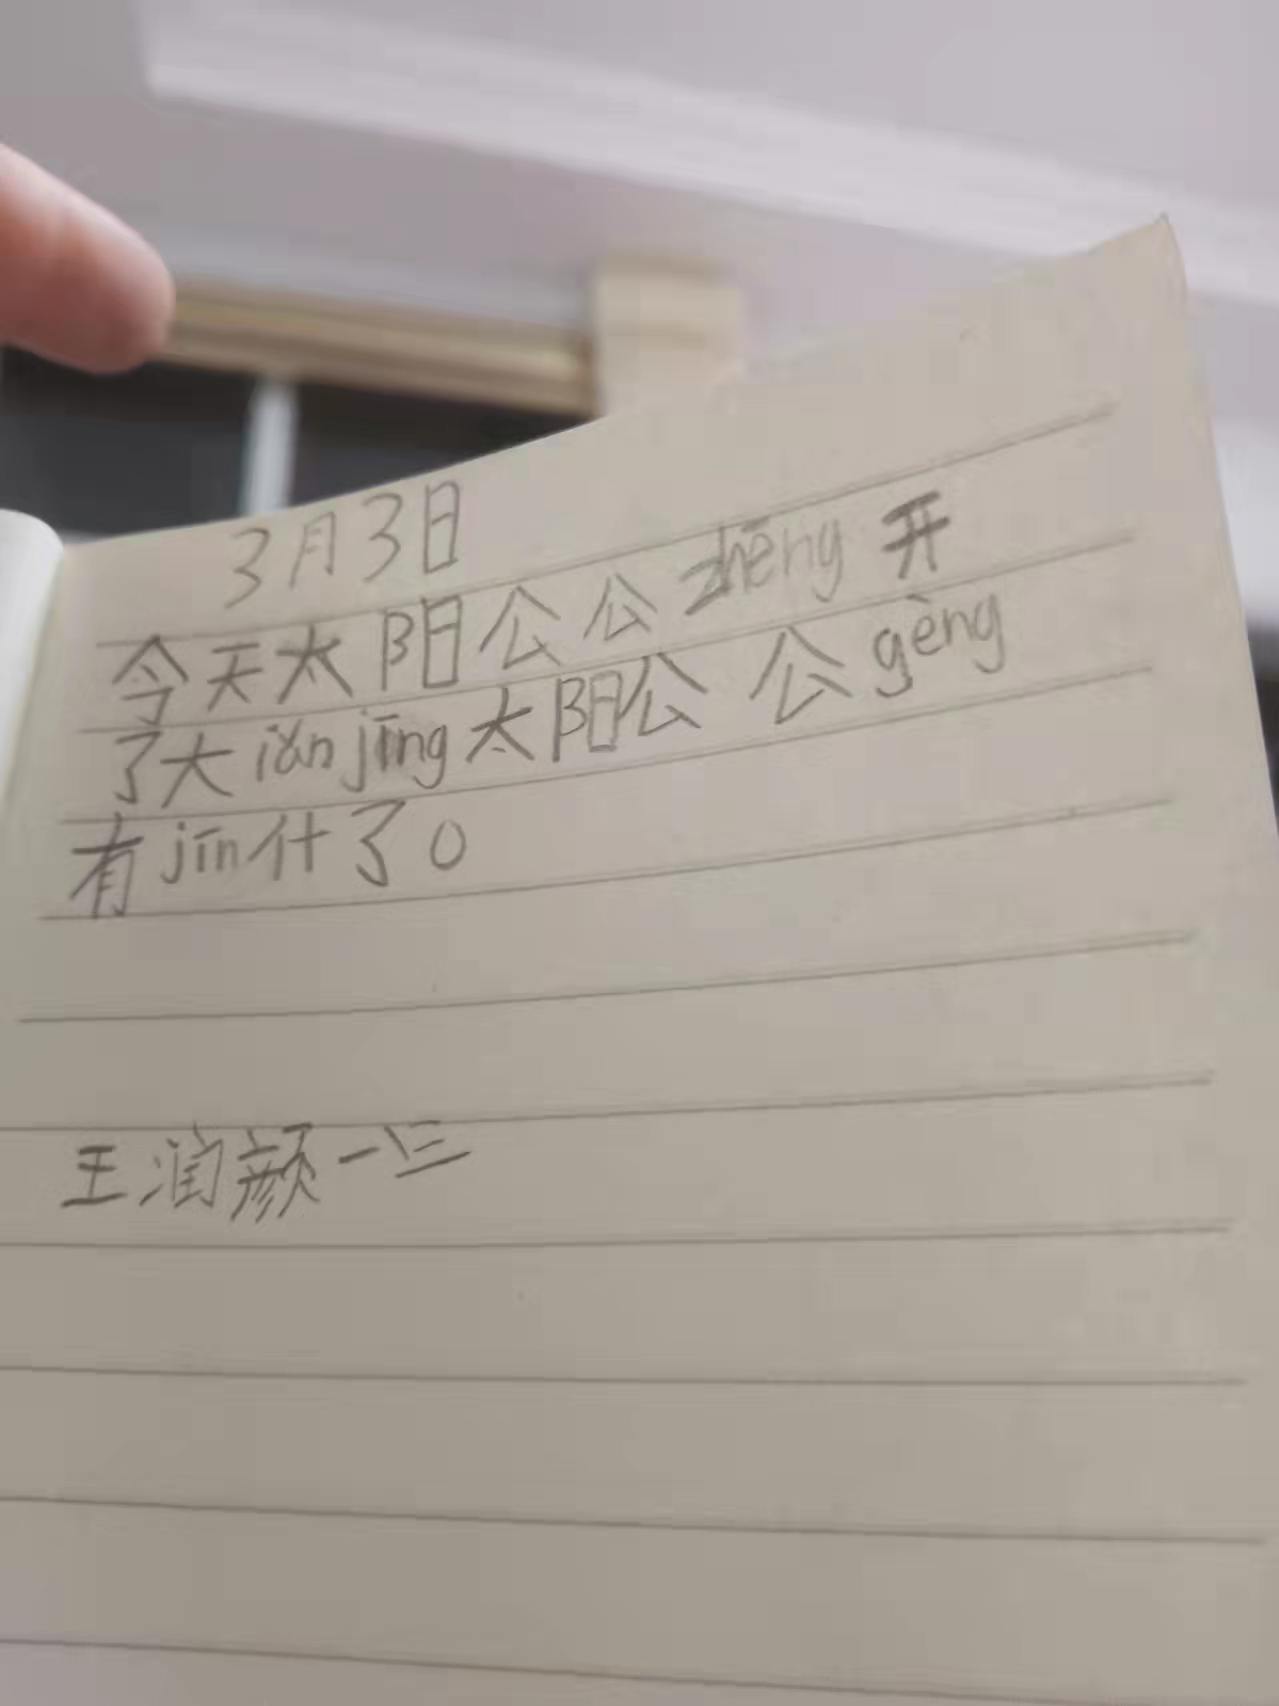 3月3日
今天太阳公公zhēng开
了大iǎn jīng太阳公公gèng
有jīn什了。
王润颜一三